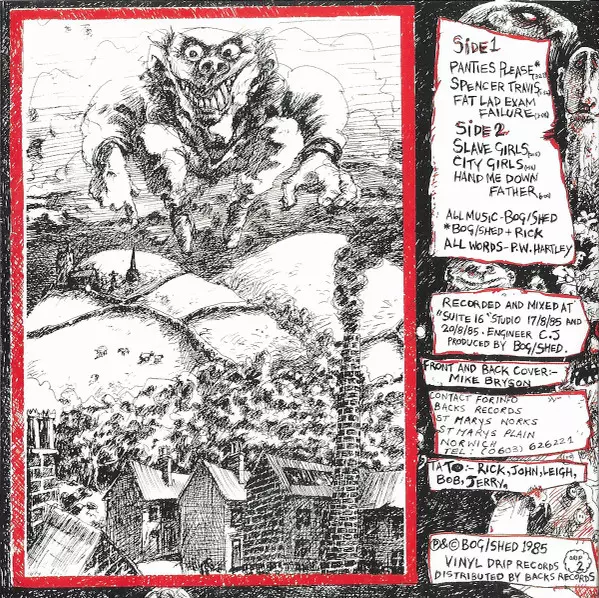 SIDE 1
PANTIES PLEASE*
SPENCER TRAVIS
FAT LAD EXAM
FAILURE
SIDE 2
SLAVE GIRLS
CITY GIRLS
HAND ME DOWN
FATHER
ALL MUSIC-BOG/SHED
*BOG/SHED + RICK
ALL WORDS-P.W. HARTLEY
RECORDED AND MIXED AT
"SUITE 16" STUDIO 17/8/85 AND
20/8/85. ENGINEER C.J
PRODUCED BY BOG/SHED.
FRONT AND BACK COVER:-
MIKE BRYSON
CONTACT FOR INFO
BACKS RECORDS
ST MARYS WORKS
ST MARYS PLAIN
NORWICH
TEL: (0603) 626221
TA TO:- RICK, JOHN, LEIGH,
BOB, JERRY.
℗&© BOG/SHED 1985
VINYL DRIP RECORDS
DRIP
2
DISTRIBUTED BY BACKS RECORDS